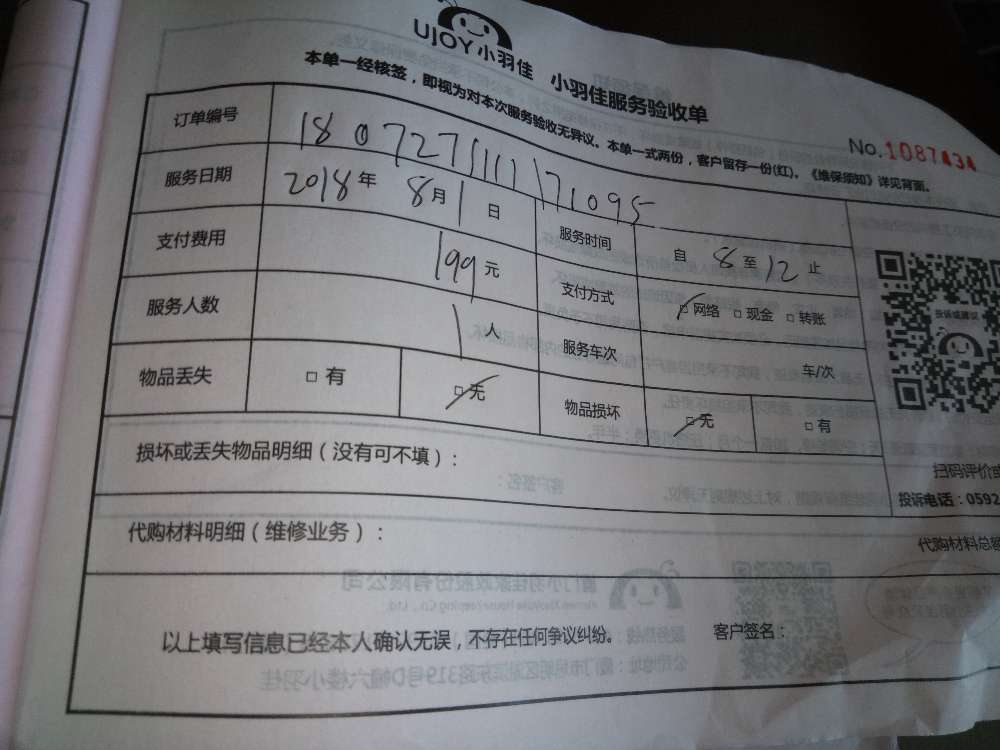 UJOY小羽佳 小羽佳服务验收单
本单一经核签，即视为对本次服务验收无异议。本单一式两份，客户留存一份(红)。《维保须知》详见背面。
No.1087434
订单编号 180727111171095
服务日期 2018年 8月 1日 服务时间 自 8 至 12 止
支付费用 199元 支付方式 □网络 □现金 □转账
服务人数 1人 服务车次 车/次
物品丢失 □有 □无 物品损坏 □无 □有
投诉或建议
损坏或丢失物品明细（没有可不填）：
扫码评价或
投诉电话：0592
代购材料明细（维修业务）：
代购材料总
以上填写信息已经本人确认无误，不存在任何争议纠纷。 客户签名：